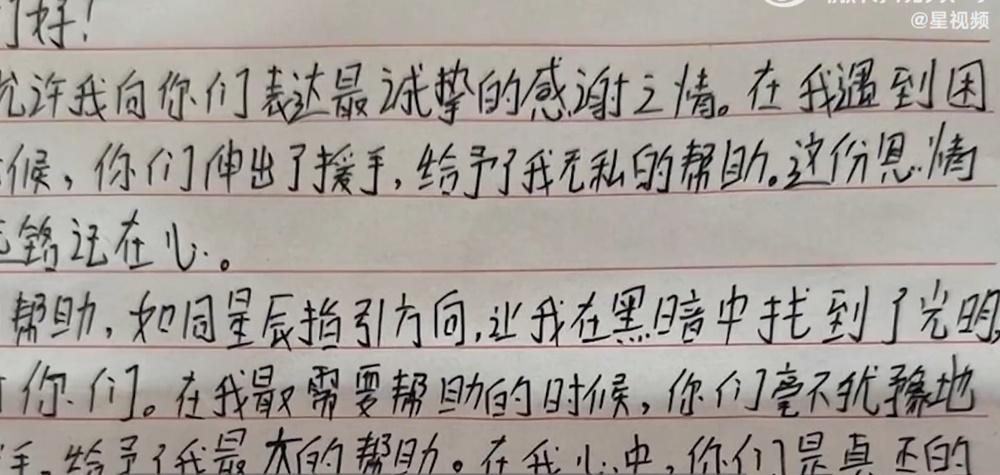 @星视频
们好!
允许我向你们表达最诚挚的感谢之情。在我遇到困
候,你们伸出了援手,给予了我无私的帮助。这份恩情
铭记在心。
帮助,如同星辰指引方向,让我在黑暗中找到了光明,
你们。在我最需要帮助的时候,你们毫不犹豫地
手,给予了我最大的帮助。在我心中,你们是真正的